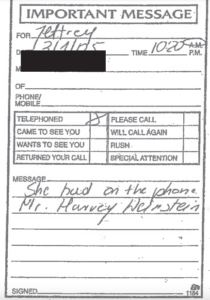 IMPORTANT MESSAGE
FOR Jeffrey
TIME 1020 A.M.
P.M.
M
OF
PHONE/
MOBILE
TELEPHONED PLEASE CALL
CAME TO SEE YOU WILL CALL AGAIN
WANTS TO SEE YOU RUSH
RETURNED YOUR CALL SPECIAL ATTENTION
MESSAGE
She had on the phone
Mr. Harvey Weinstein
SIGNED
1184